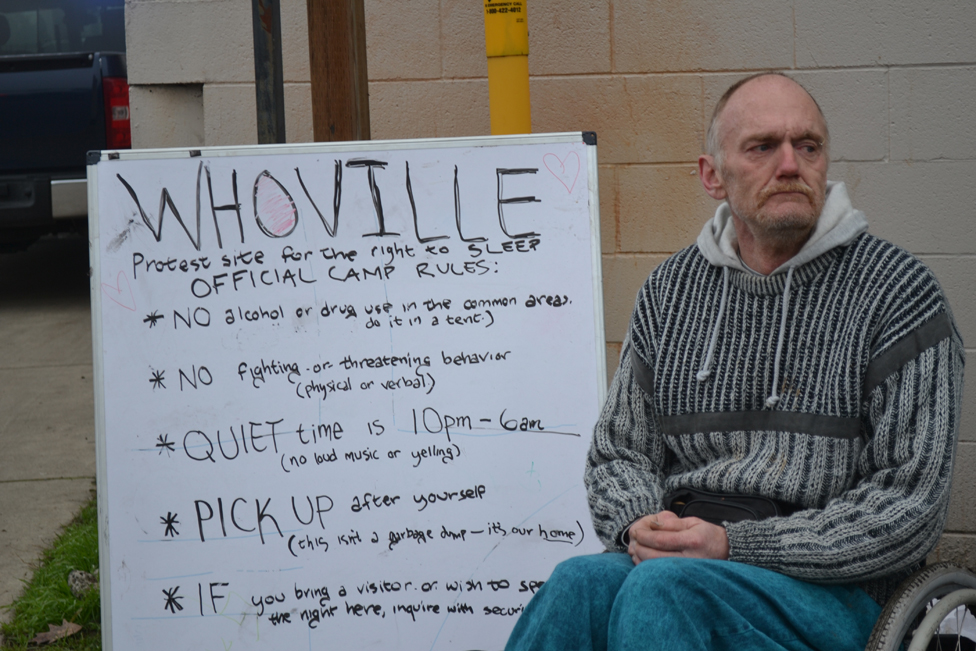 EMERGENCY CALL
WHOVILLE
Protest site for the right to SLEEP
OFFICIAL CAMP RULES:
* NO alcohol or drug use in the common areas.
do it in a tent.)
* NO fighting or threatening behavior
(physical or verbal)
* QUIET time is 10pm - 6am
(no loud music or yelling)
* PICK UP after yourself
(this isn't a garbage dump - it's our home)
* IF you bring a visitor or wish to
the night here, inquire with